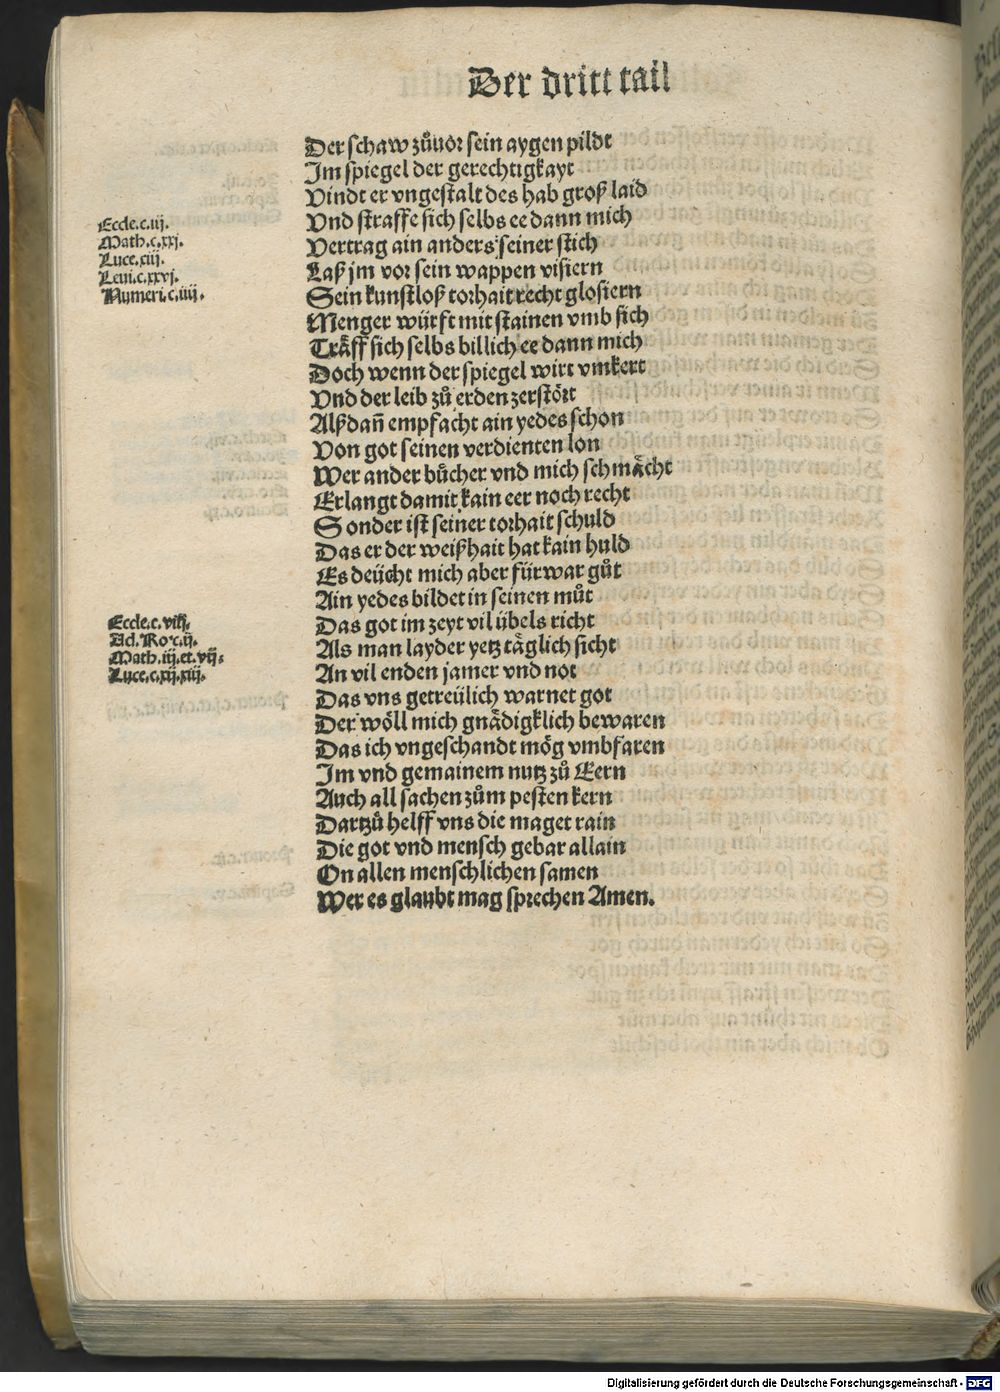 Der dritt tail
Der schaw zůuor sein aygen pildt
Im spiegel der gerechtigkayt
Vindt er vngestalt des hab groß laid
Vnd straffe sich selbs ee dann mich
Vertrag ain anders seiner stich
Laß jm vor sein wappen visiern
Sein kunstloß torhait recht glosiern
Menger würft mit stainen vmb sich
Träff sich selbs billich ee dann mich
Doch wenn der spiegel wirt vmkert
Vnd der leib zů erden zerstört
Alßdañ empfacht ain yedes schon
Von got seinen verdienten lon
Wer ander bůcher vnd mich schmächt
Erlangt damit kain eer noch recht
Sonder ist seiner torhait schuld
Das er der weißhait hat kain huld
Es deücht mich aber fürwar gůt
Ain yedes bildet in seinen můt
Das got im zeyt vil übels richt
Als man layder yetz täglich sicht
An vil enden jamer vnd not
Das vns getreülich warnet got
Der wöll mich gnädigklich bewaren
Das ich vngeschandt mög vmbfaren
Im vnd gemainem nutz zů Eern
Auch all sachen zům pesten kern
Dartzů helff vns die maget rain
Die got vnd mensch gebar allain
On allen menschlichen samen
Wer es glaubt mag sprechen Amen.
Eccle.c.iij.
Math.c.xxj.
Luce.xiij.
Leui.c.xxvj.
Numeri.c.iiij.
Eccle.c.viij.
Ad.Ro.c.ij.
Math.iij.et.vij.
Luce.c.xij.xiij.
Digitalisierung gefördert durch die Deutsche Forschungsgemeinschaft - DFG